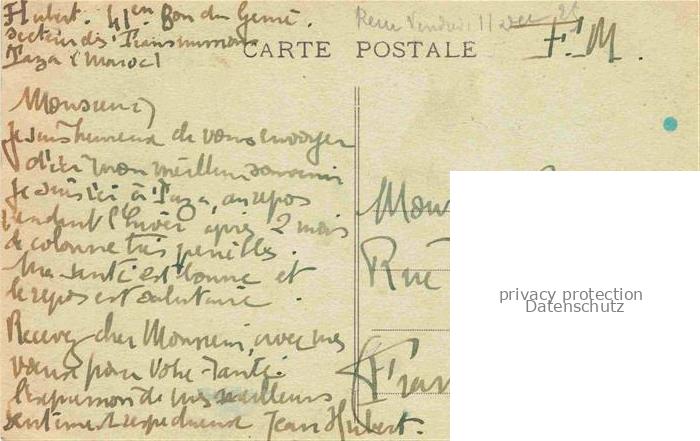 Hubert. 41en Bon du Génie.
secteur des Transmissions
Taza (Maroc)
Reçu Vendredi 11 Dec
F.M.
CARTE POSTALE
Monsieur,
Je suis heureux de vous envoyer
d'ici mon meilleur souvenir
Je suis ici, à Taza, au repos
pendant l'hiver après 2 mois
de colonne très pénibles.
Ma santé est bonne et
le repos est salutaire.
Recevez cher Monsieur, avec mes
vœux pour votre santé.
l'expression de mes meilleurs
sentiments respectueux Jean Hubert.
Rue
privacy protection
Datenschutz